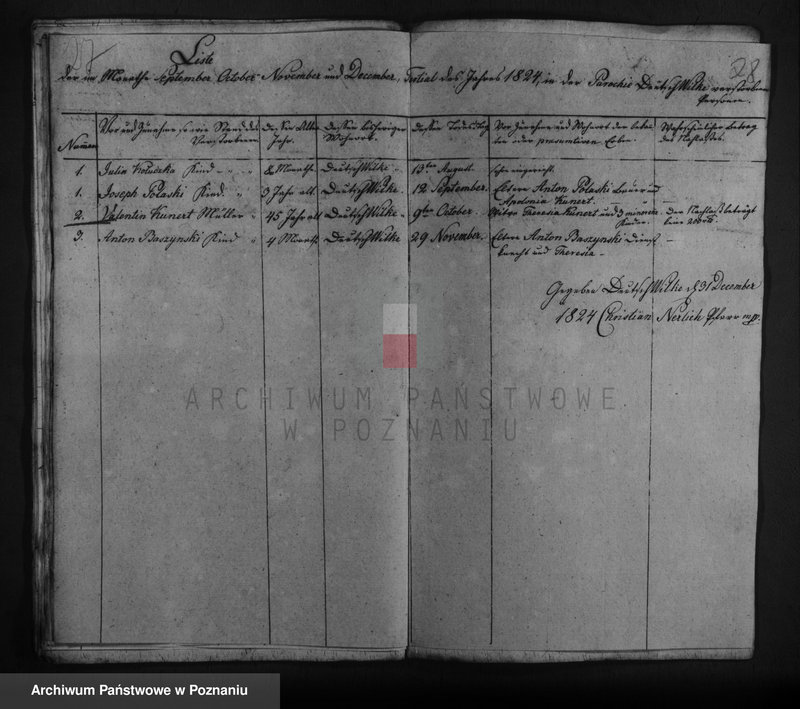 27
28
Liste
der im Monathe September October November und December, Tertial des Jahres 1824, in der Parochie Deutsch Wilke verstorbenen
Personen.
Numer. Vor und Zunahme so wie Stand des Verstorbenen Dessen Alter Jahr. Dessen bisheriger Wohnort. Dessen Todes Tag Vor Zunahme und Wohnort der oder präsumtiven Erben. Wahrscheinlicher Betrag des Nachlasses.
1. Kind 8 Monathe Deutsch Wilke 13ten August.
1. Joseph Polaski Kind 3 Jahr alt. Deutsch Wilke 12 September. Eltern Anton Polaski Bauer und
Apolonia Kunert.
2. Valentin Kunert Müller 45 Jahr alt Deutsch Wilke 9ten October. Witwe Theresia Kunert und 3 minorene Kinder. Der Nachlaß beträgt
keine 200 rtl.
3. Anton Baszynski Kind 4 Monath. Deutsch Wilke 29 November. Eltern Anton Baszynski Dienst
knecht und Theresia –
Gegeben Deutsch Wilke d 31 December
1824 Christian Nerlich Pfarr mpp.
ARCHIWUM PAŃSTWOWE
W POZNANIU
Archiwum Państwowe w Poznaniu